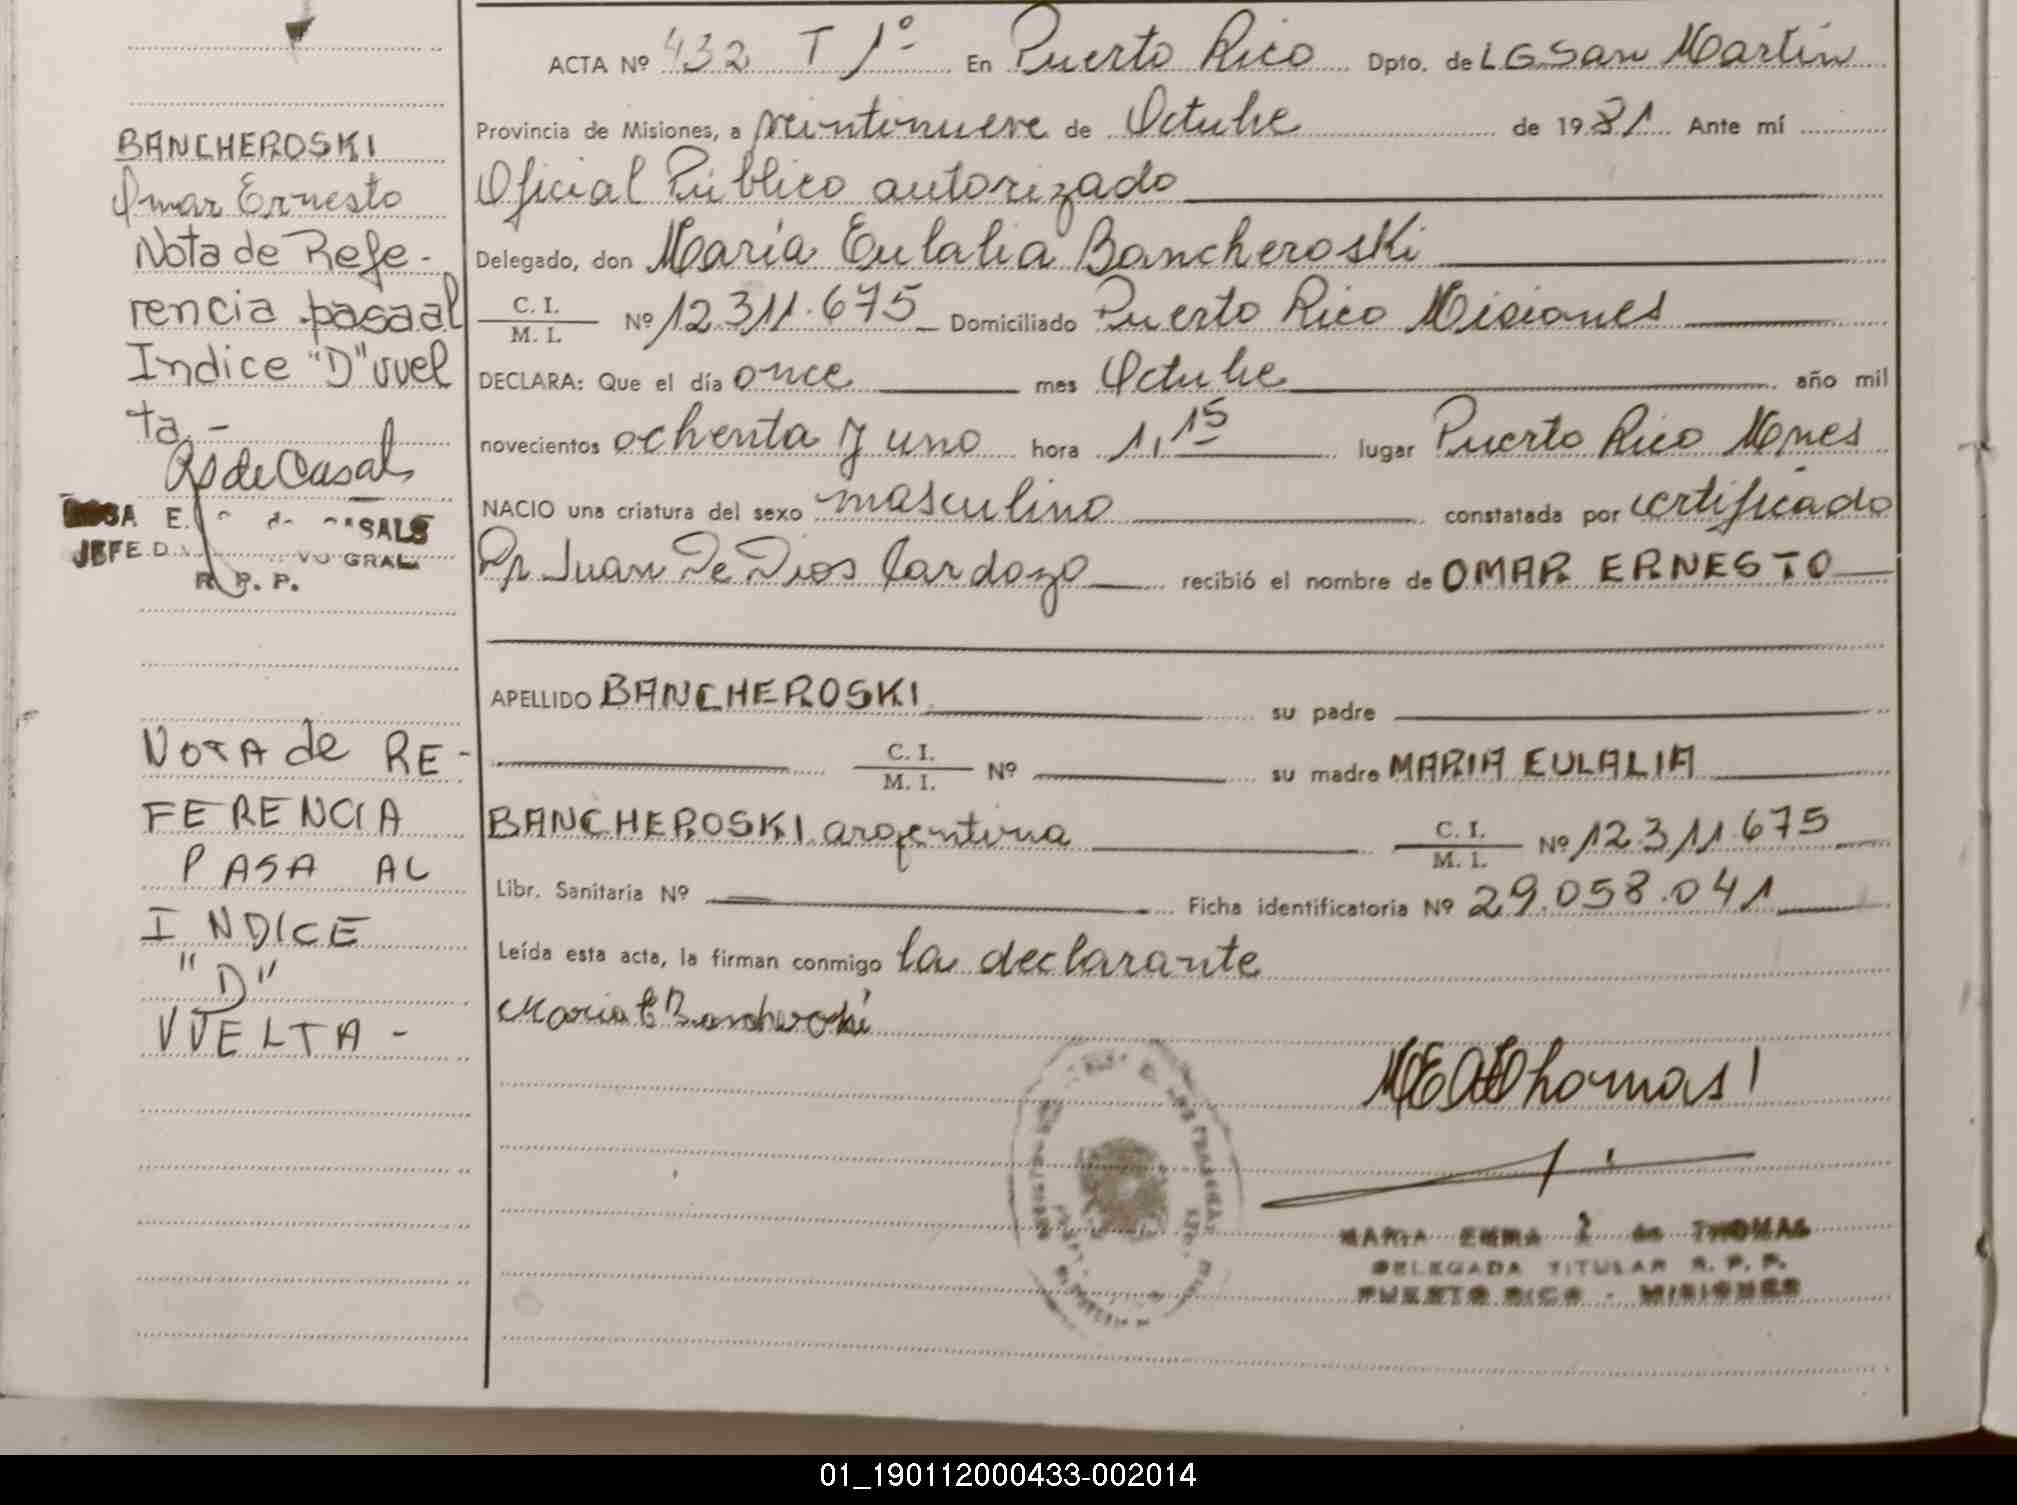 BANCHEROSKI
Omar Ernesto
Nota de Refe-
rencia pasa al
Indice "D" vuel
ta.-
Rs de Casal
E. SALS
JEFE D GRAL.
R. P. P.
NOTA de RE-
FERENCIA
PASA AL
INDICE
"D"
VVELTA-
ACTA Nº 432 T 1º En Puerto Rico Dpto. de L G San Martín
Provincia de Misiones, a veintinueve de Octubre de 1981 Ante mí
Oficial Público autorizado
Delegado, don María Eulalia Bancheroski
C. I.
M. I. Nº 12.311.675 Domiciliado Puerto Rico Misiones
DECLARA: Que el día once mes Octubre año mil
novecientos ochenta y uno hora 1,15 lugar Puerto Rico Mnes
NACIO una criatura del sexo masculino constatada por certificado
Dr Juan De Dios Cardozo recibió el nombre de OMAR ERNESTO
APELLIDO BANCHEROSKI su padre
C. I.
M. I. Nº su madre MARIA EULALIA
BANCHEROSKI argentina C. I.
M. I. Nº 12.311.675
Libr. Sanitaria Nº Ficha identificatoria Nº 29.058.041
Leída esta acta, la firman conmigo la declarante
Maria E Bancheroski
MARIA EMMA de THOMAS
DELEGADA TITULAR R. P. P.
PUERTO RICO - MISIONES
01_190112000433-002014